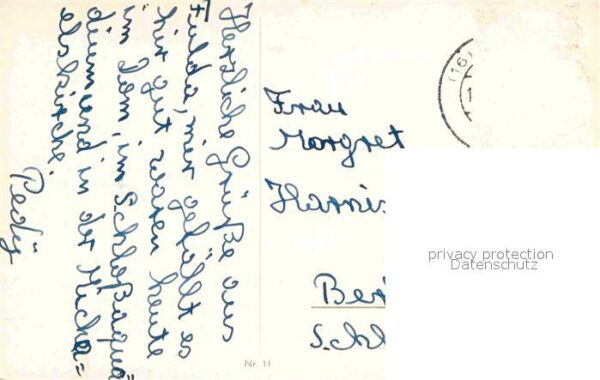 Herzliche Grüße aus
Fulda, mir gefällt es
hir gut waren heute
im Dom, im Schloßaquä
dium und in der Micha=
elskirche.
Pedij
Frau
Margret
Harnis
Ber
Schl
(16)
Nr. 11
privacy protection
Datenschutz